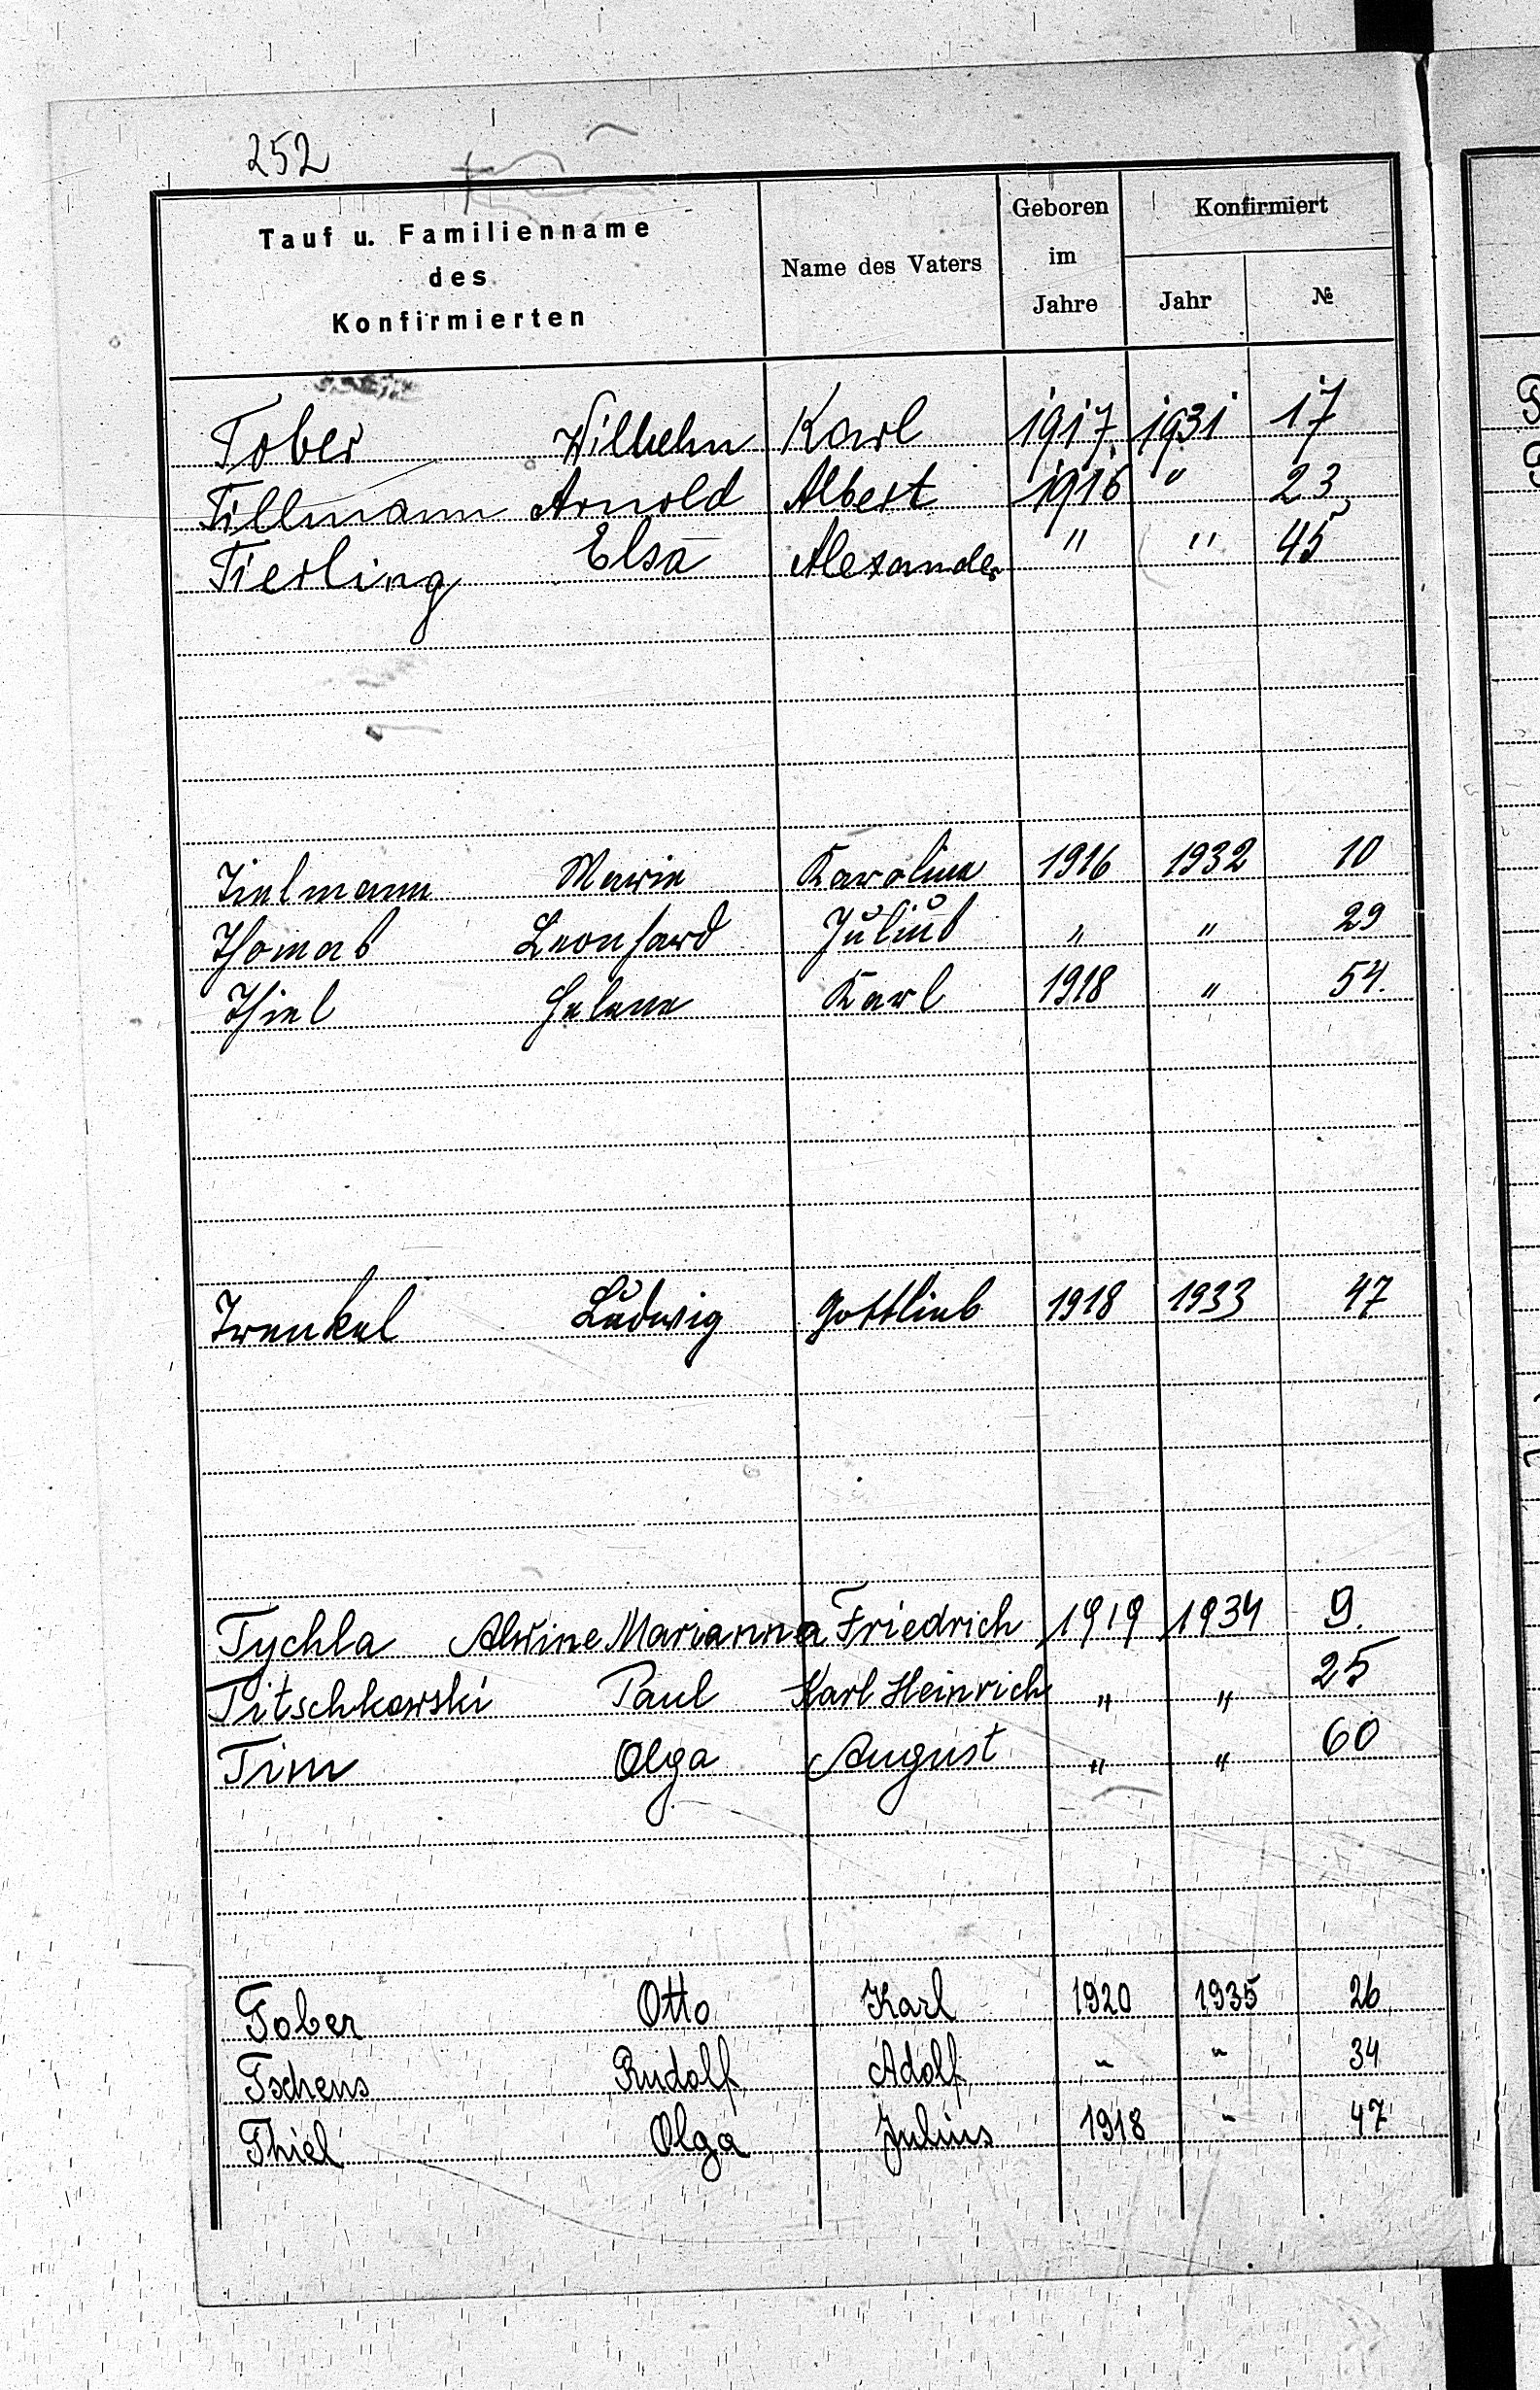 252
Tauf u. Familienname des Konfirmierten | Name des Vaters | Geboren im Jahre | Konfirmiert Jahr | №
Tober Wilhelm | Karl | 1917 | 1931 | 17
Tillmann Arnold | Albert | 1916 | " | 23
Tierling Elsa | Alexander | " | " | 45
Tielmann Marie | Karoline | 1916 | 1932 | 10
Thomas Leonhard | Julius | " | " | 29
Thiel Helene | Karl | 1918 | " | 54.
Trenkel Ludwig | Gottlieb | 1918 | 1933 | 47
Tychla Alwine Marianna | Friedrich | 1919 | 1934 | 9.
Titschkowski Paul | Karl Heinrich | " | " | 25
Tim Olga | August | " | " | 60
Tober Otto | Karl | 1920 | 1935 | 26
Tschens Rudolf | Adolf | " | " | 34
Thiel Olga | Julius | 1918 | " | 47